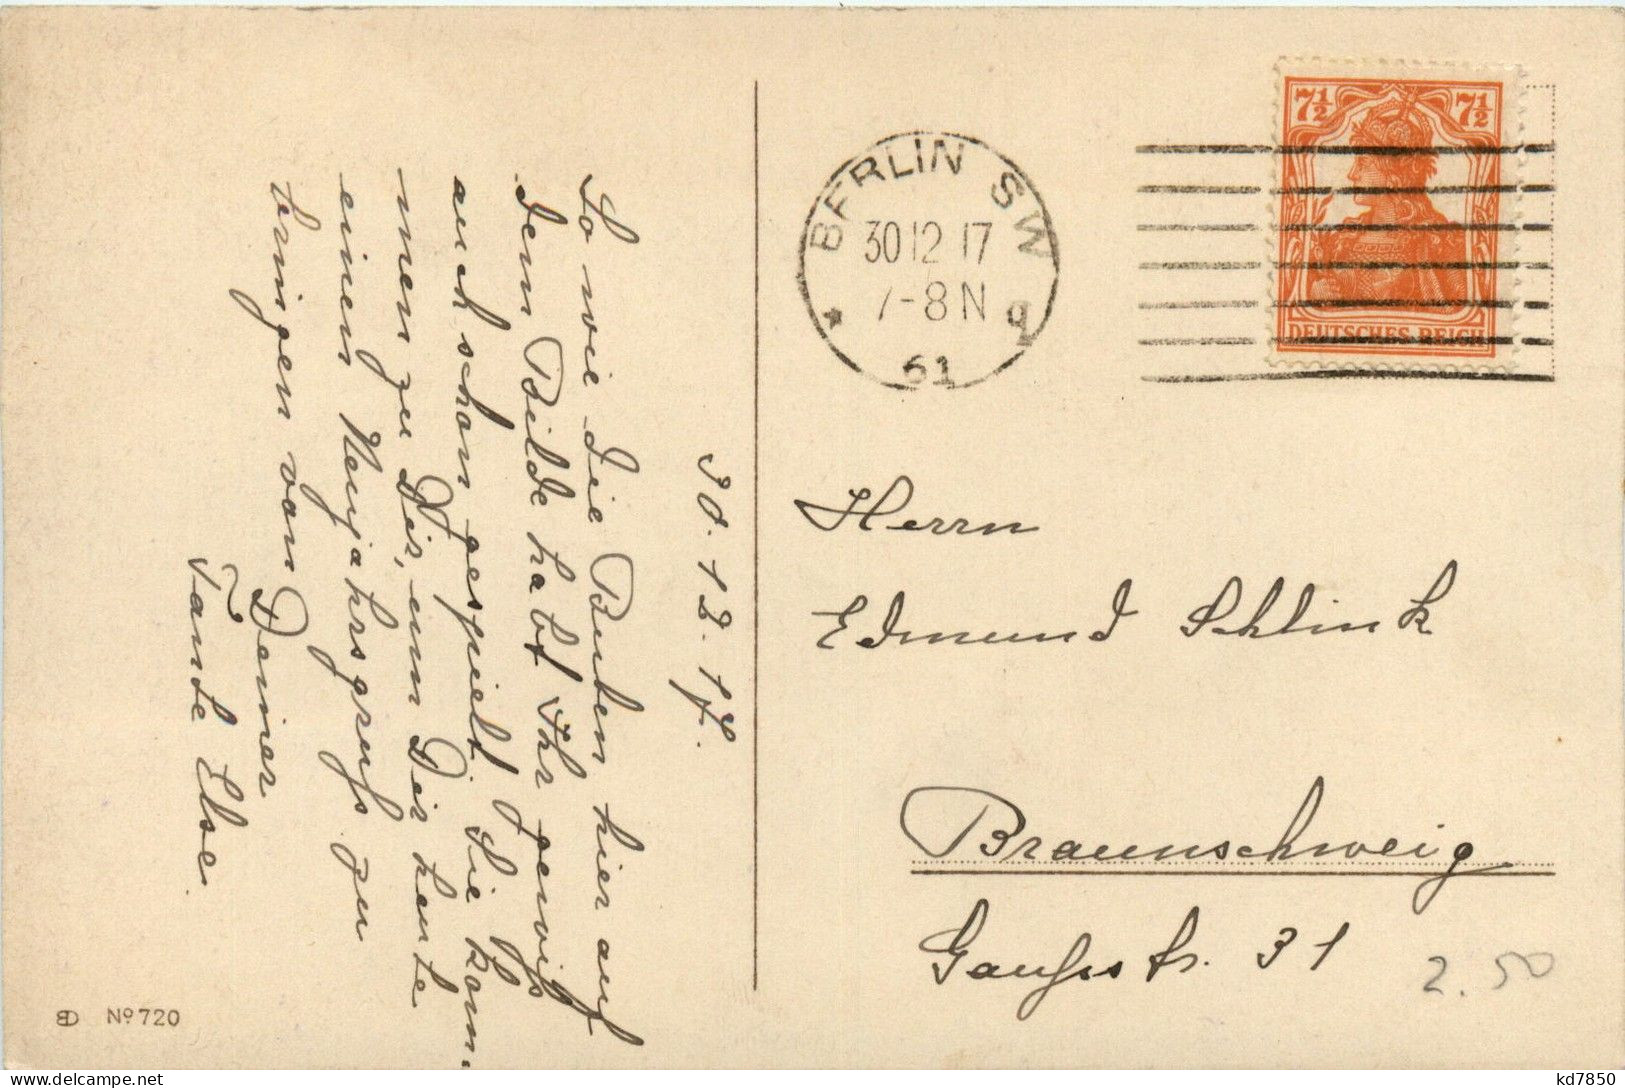 30.12.17.
So wie die Buben hier auf
dem Bilde habt Ihr gewiß
auch schon gespielt. Sie kom-
men zu Dir, um Dir heute
einen Neujahrsgruß zu
bringen von
Deiner
Tante Else.
BERLIN SW
30 12 17
7-8 N
* 61 q
7½ 7½
DEUTSCHES REICH
Herrn
Edmund Schlink
Braunschweig
Gaußstr. 31
2.50
BD Nº 720
kd7850